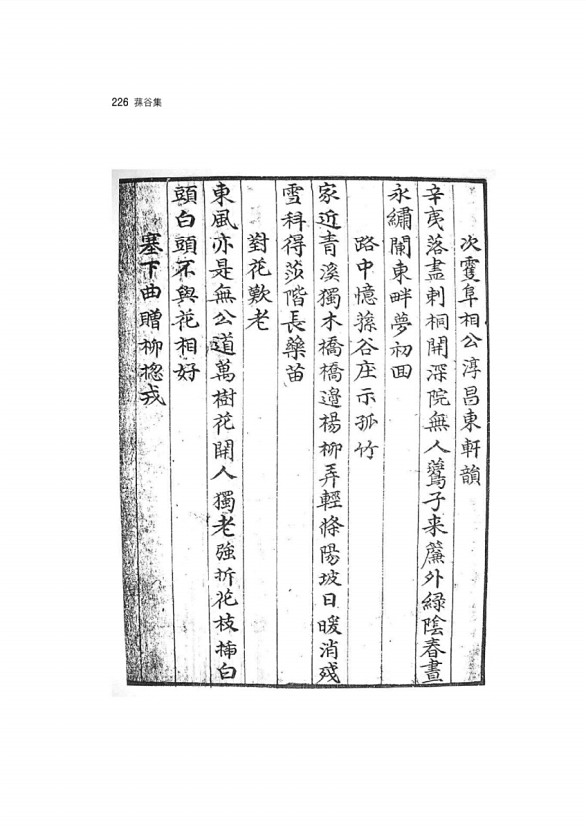 226 蓀谷集
次阜相公淳昌東軒韻
辛夷落盡刺桐開深院無人鷰子来簾外綠陰春晝
永繡闌東畔夢初回
路中憶蓀谷庄示孤竹
家近青溪獨木橋橋邊楊柳弄輕條陽坡日暖消殘
雪科得莎階長藥苗
對花歎老
東風亦是無公道萬樹花開人獨老強折花枝揷白
頭白頭不與花相好
塞下曲贈柳摠戎